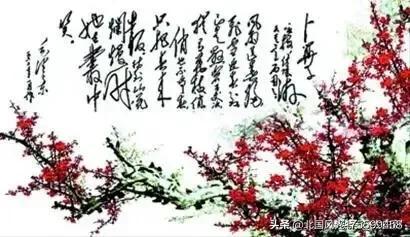 卜算子
风雨送春归
飞雪迎春到
已是悬崖百丈冰
犹有花枝俏
俏也不争春
只把春来
报待到山花
烂漫时
她在丛中
笑
毛泽东
头条 @北国风